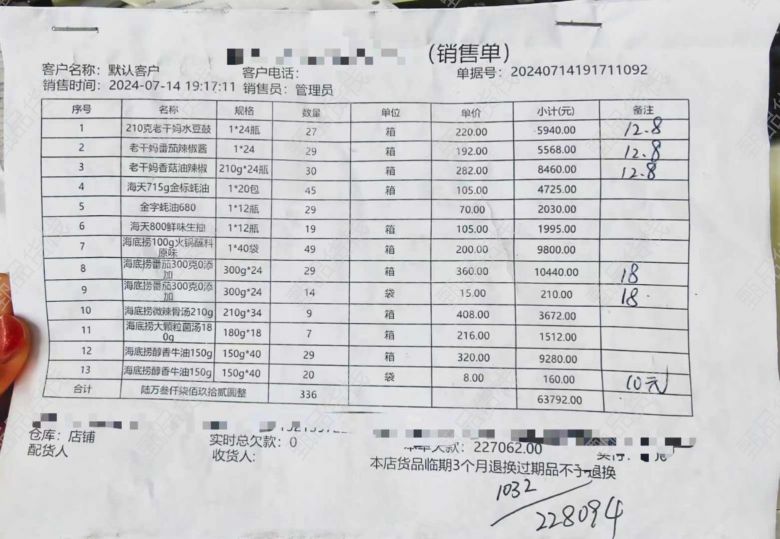 (销售单)
客户名称: 默认客户 客户电话: 单据号: 20240714191711092
销售时间: 2024-07-14 19:17:11 销售员: 管理员
序号 名称 规格 数量 单位 单价 小计(元) 备注
1 210克老干妈水豆鼓 1*24瓶 27 箱 220.00 5940.00 12.8
2 老干妈番茄辣椒酱 1*24 29 箱 192.00 5568.00 12.8
3 老干妈香菇油辣椒 210g*24瓶 30 箱 282.00 8460.00 12.8
4 海天715g金标蚝油 1*20包 45 箱 105.00 4725.00
5 金字蚝油680 1*12瓶 29 70.00 2030.00
6 海天800鲜味生抽 1*12瓶 19 箱 105.00 1995.00
7 海底捞100g火锅蘸料原味 1*40袋 49 箱 200.00 9800.00
8 海底捞番茄300克0添加 300g*24 29 箱 360.00 10440.00 18
9 海底捞番茄300克0添加 300g*24 14 袋 15.00 210.00 18
10 海底捞微辣骨汤210g 210g*34 9 箱 408.00 3672.00
11 海底捞大颗粒菌汤180g 180g*18 7 箱 216.00 1512.00
12 海底捞醇香牛油150g 150g*40 29 箱 320.00 9280.00
13 海底捞醇香牛油150g 150g*40 20 袋 8.00 160.00 10元
合计 陆万叁仟柒佰玖拾贰圆整 336 63792.00
仓库: 店铺 实时总欠款: 0 227062.00
配货人 收货人: 本店货品临期3个月退换过期品不予退换
1032
228094